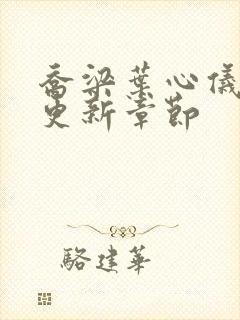 乔梁葉心儀
更新章節
駱建華